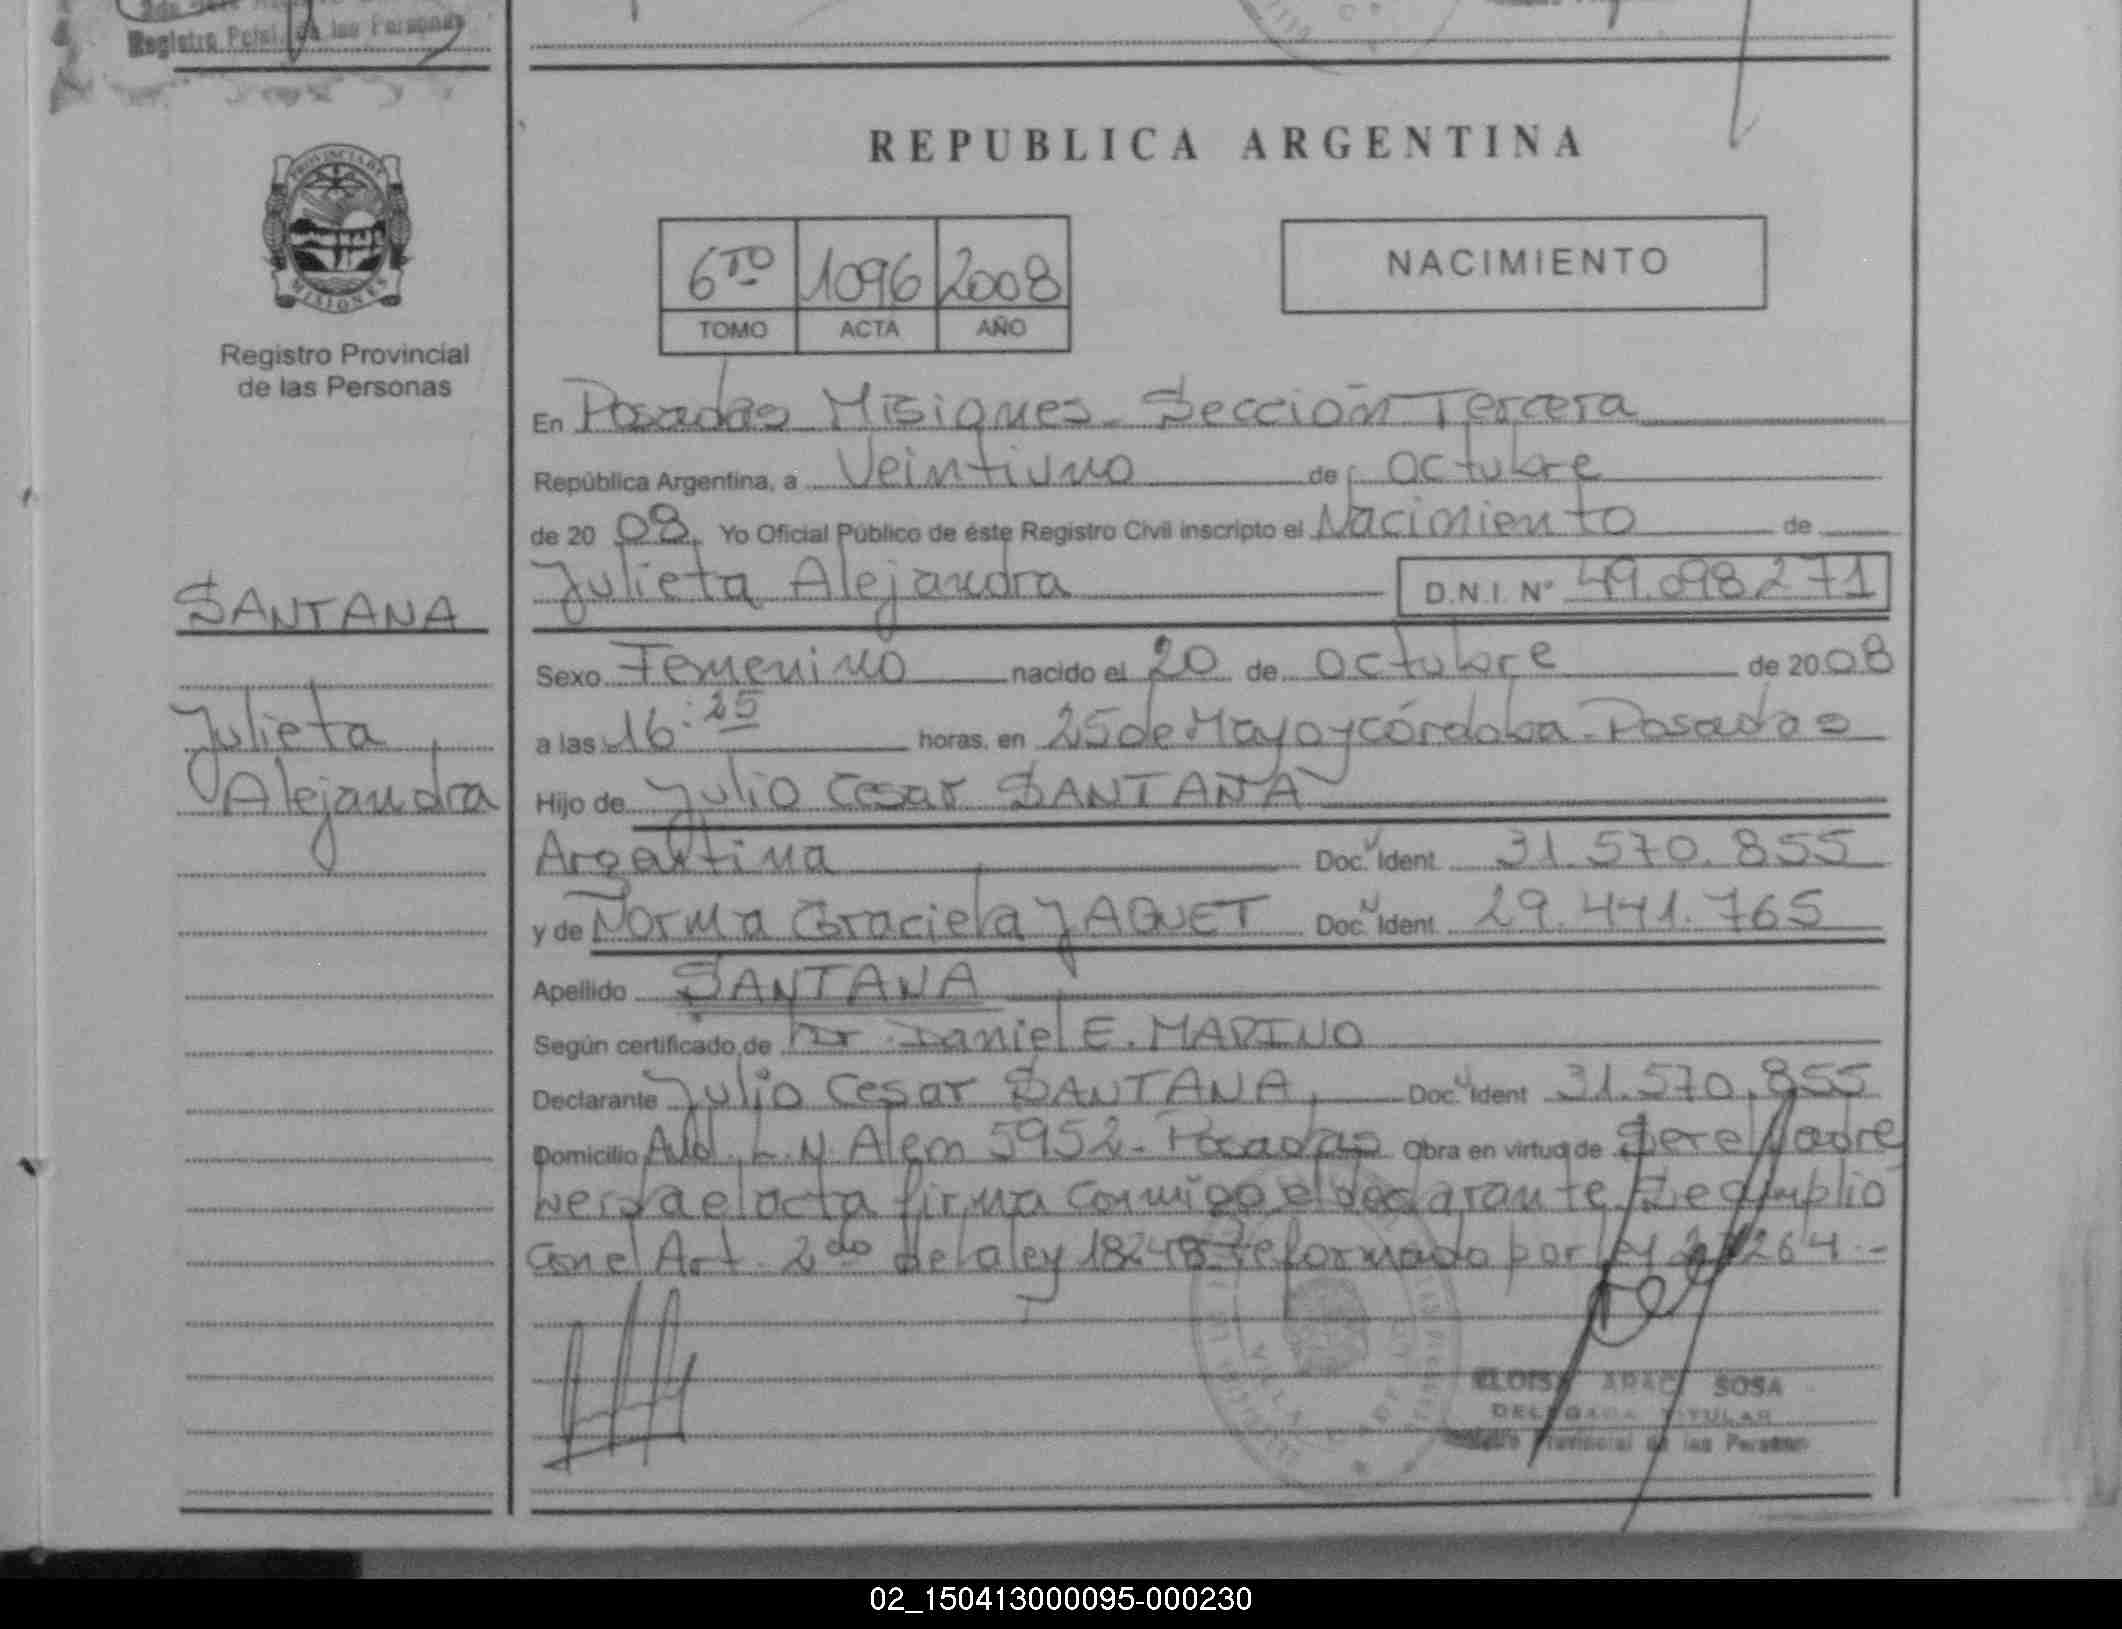 Registro Pcial. de las Personas
PROVINCIA DE
MISIONES
Registro Provincial
de las Personas
SANTANA
Julieta
Alejandra
REPUBLICA ARGENTINA
6TO 1096 2008
TOMO ACTA AÑO
NACIMIENTO
En Posadas Misiones - Sección Tercera
República Argentina, a Veintiuno de Octubre
de 20 08. Yo Oficial Público de éste Registro Civil inscripto el Nacimiento de
Julieta Alejandra D.N.I. Nº 49.098.271
Sexo Femenino nacido el 20 de Octubre de 20 08
a las 16:25 horas, en 25 de Mayo y córdoba - Posadas
Hijo de Julio Cesar SANTANA
Argentina Doc. Ident. 31.570.855
y de Norma Graciela JAQUET Doc. Ident. 29.441.765
Apellido SANTANA
Según certificado de Dr. Daniel E. MARINO
Declarante Julio Cesar SANTANA, Doc. Ident 31.570.855
Domicilio Avd. L.N. Alem 5952 - Posadas Obra en virtud de Ser el Padre
el acta firma conmigo el declarante. Se cumplio
con el Art. 2do de la ley 18248 reformado por ley 264.-
ELOISA ARACI SOSA
DELEGADA TITULAR
Registro Provincial de las Personas
02_150413000095-000230